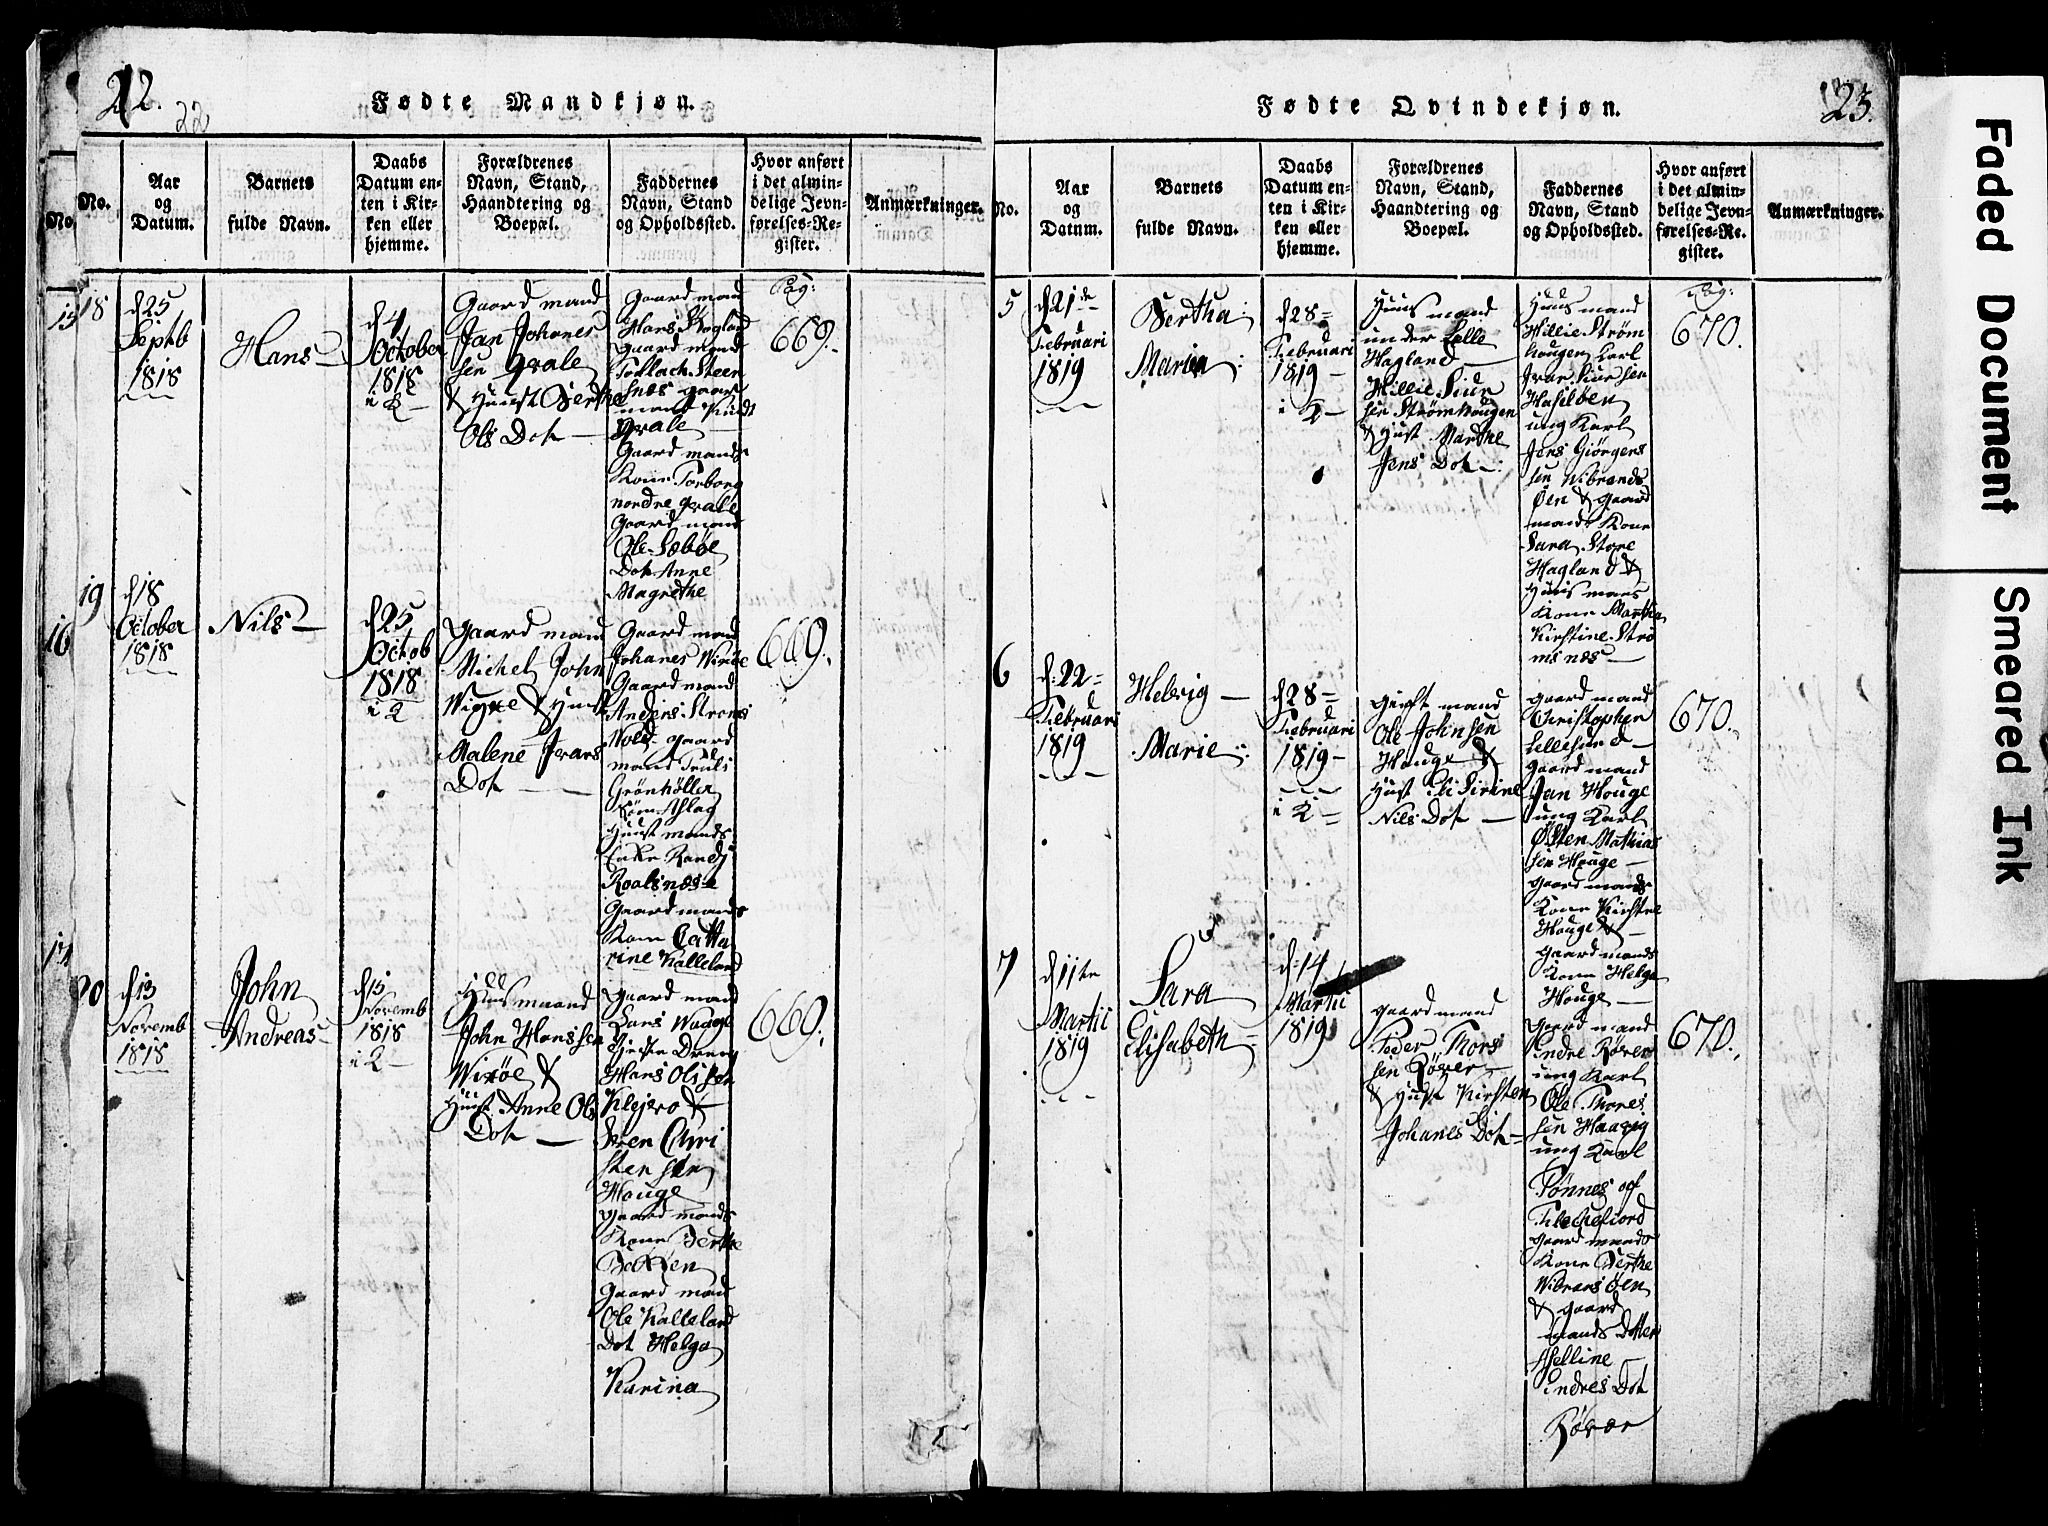 22.
22
Fødte Mandkjøn.
No.
No.
Aar
og
Datum.
Barnets
fulde Navn.
Daabs
Datum en-
ten i Kir-
ken eller
hjemme.
Forældrenes
Navn, Stand,
Haandtering og
Boepæl.
Faddernes
Navn, Stand
og Opholdssted.
Hvor anført
i det almin-
delige Jevn-
førelses-Re-
gister.
Anmærkninger.
18
d 25
Septb
1818
Hans
d 4
October
1818
i K
Gaard mand
Jan Johanes
sen Qvale
& Hust Berthe
Ols Dot
Gaard mand
Hans
Gaard mand
Steen
snæs gaar
mand Knudt
Qvale
Gaard mands
Kone Torborg
nordre Qvale
Gaard mand
Ole Sæbøe
Dot Anne
Magrethe
Pag:
669.
19
16
d 18
October
1818
Nils
d 25
Octob
1818
i K
Gaard mand
Michel John
& Hust
Malene Ivars
Dot
Gaard mand
Johanes Wixøe
Gaard mand
Anders
gaard
mand Truls
Grönhöller
Aslag
Huust mands
Enke Randj
Roalsnæs
Gaard mands
Kone Catta
rine Kalleland
669.
20
d 13
Novemb
1818
John
Andreas
d 15
Novemb
1818
i K
Huus maand
John Hanssen
Wixøe &
Hust Anne Ols
Dot
Gaard mand
Lars Waage
Dreng
Hans Olssen
Klejero &
Sven Chri
stensen
Houge
Gaard mands
Kone Berthe
Bakken
Gaard man
Ole Kalleland
Dot Helga
Karina
669.
23.
Fødte Qvindekjøn.
No.
Aar
og
Datum.
Barnets
fulde Navn.
Daabs
Datum en-
ten i Kir-
ken eller
hjemme.
Forældrenes
Navn, Stand,
Haandtering og
Boepæl.
Faddernes
Navn, Stand
og Opholdssted.
Hvor anført
i det almin-
delige Jevn-
førelses-Re-
gister.
Anmærkninger.
5
d 21de
Februari
1819
Bertha
Maria
d 28
Februari
1819
i K
Huus mand
under Lille
Hagland
Willie Siur
sen Strømhougen
& Hust Marthe
Jens Dot
Huus mand
Willie Strøm
hougen Karl
Ivar Siursen
Hasseløen
ung Karl
Jens Giörgens
sen Wibrands
Øen & gaard
mands Kone
Sara Store
Hagland &
Huus mans
Kone Martha
Kirstine Strö
msnes
Pag:
670.
6
d: 22
Februari
1819
Helvig
Marie
d 28
Februari
1819
i K
Gift mand
Ole Johnsen
Houge &
Hust Eli Sirine
Nils Dot
Gaard mand
Christopher
Lillesund
Gaard mand
Jan Houge
ung Karl
Østen Mathias
sen Houge
gaard mands
Kone Kirstne
Houge &
Gaard mands
Kone Helga
Houge
670.
7
d 11te
Martii
1819
Sara
Elisabeth
d: 14
Martii
1819
Gaard mand
Peder Thors
sen Röver
& Hust Kirsten
Johanes Dot
Gaard mand
Endre Röver
ung Karl
Ole Thores
sen Haaveg
ung Karl
Tönnes af
Flechefiord
gaard mands
Kone Berthe
Wibrans Øen
& gaard
mands Dotter
Aselline
Endres Dot
Röver
670.
Faded Document
Smeared Ink